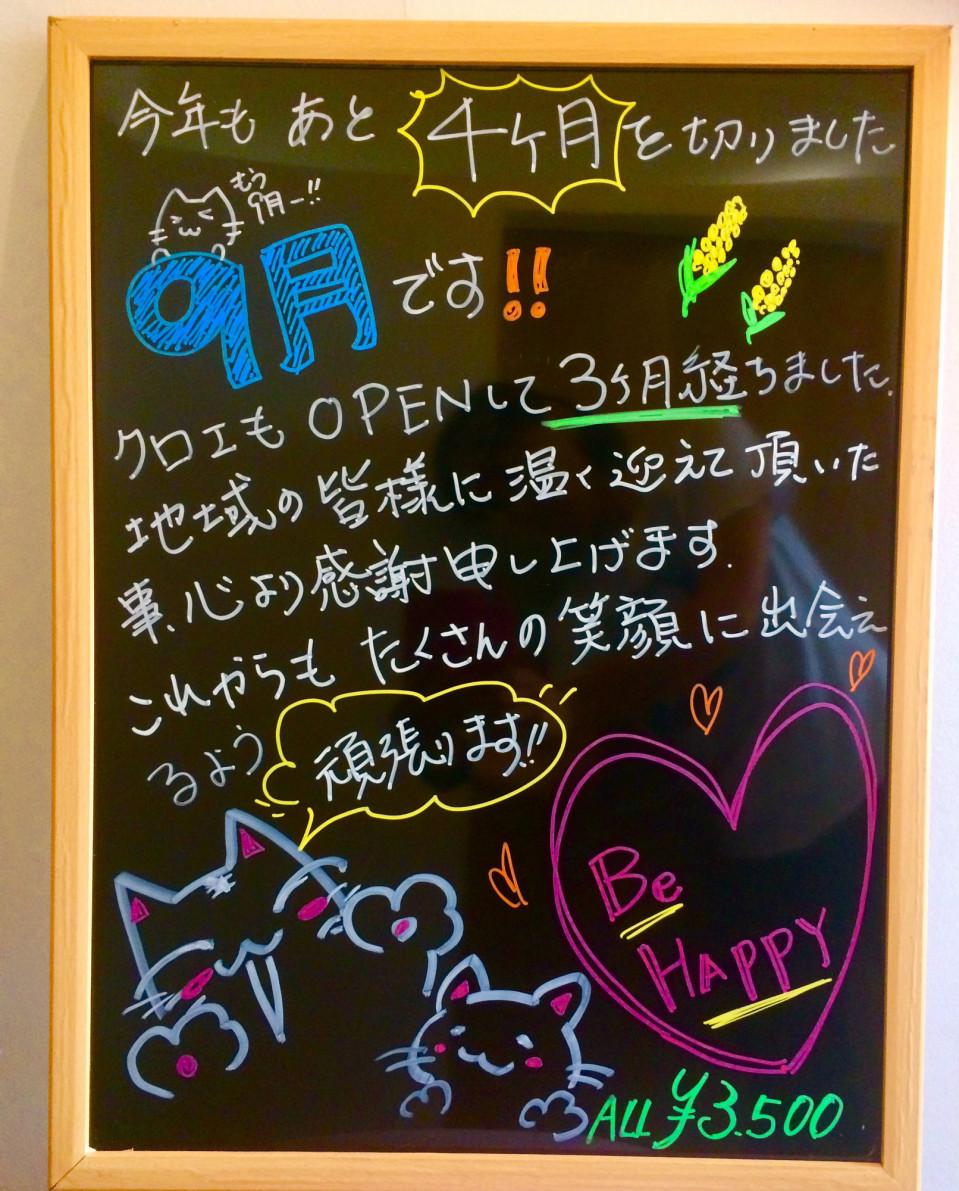 今年もあと4ヶ月を切りました
もう
9月ー!!
9月です!!
クロエもOPENして3ヶ月経ちました.
地域の皆様に温く迎えて頂いた
事、心より感謝申し上げます.
これからもたくさんの笑顔に出会え
るよう
頑張ります!!
Be
HAPPY
ALL ¥3.500